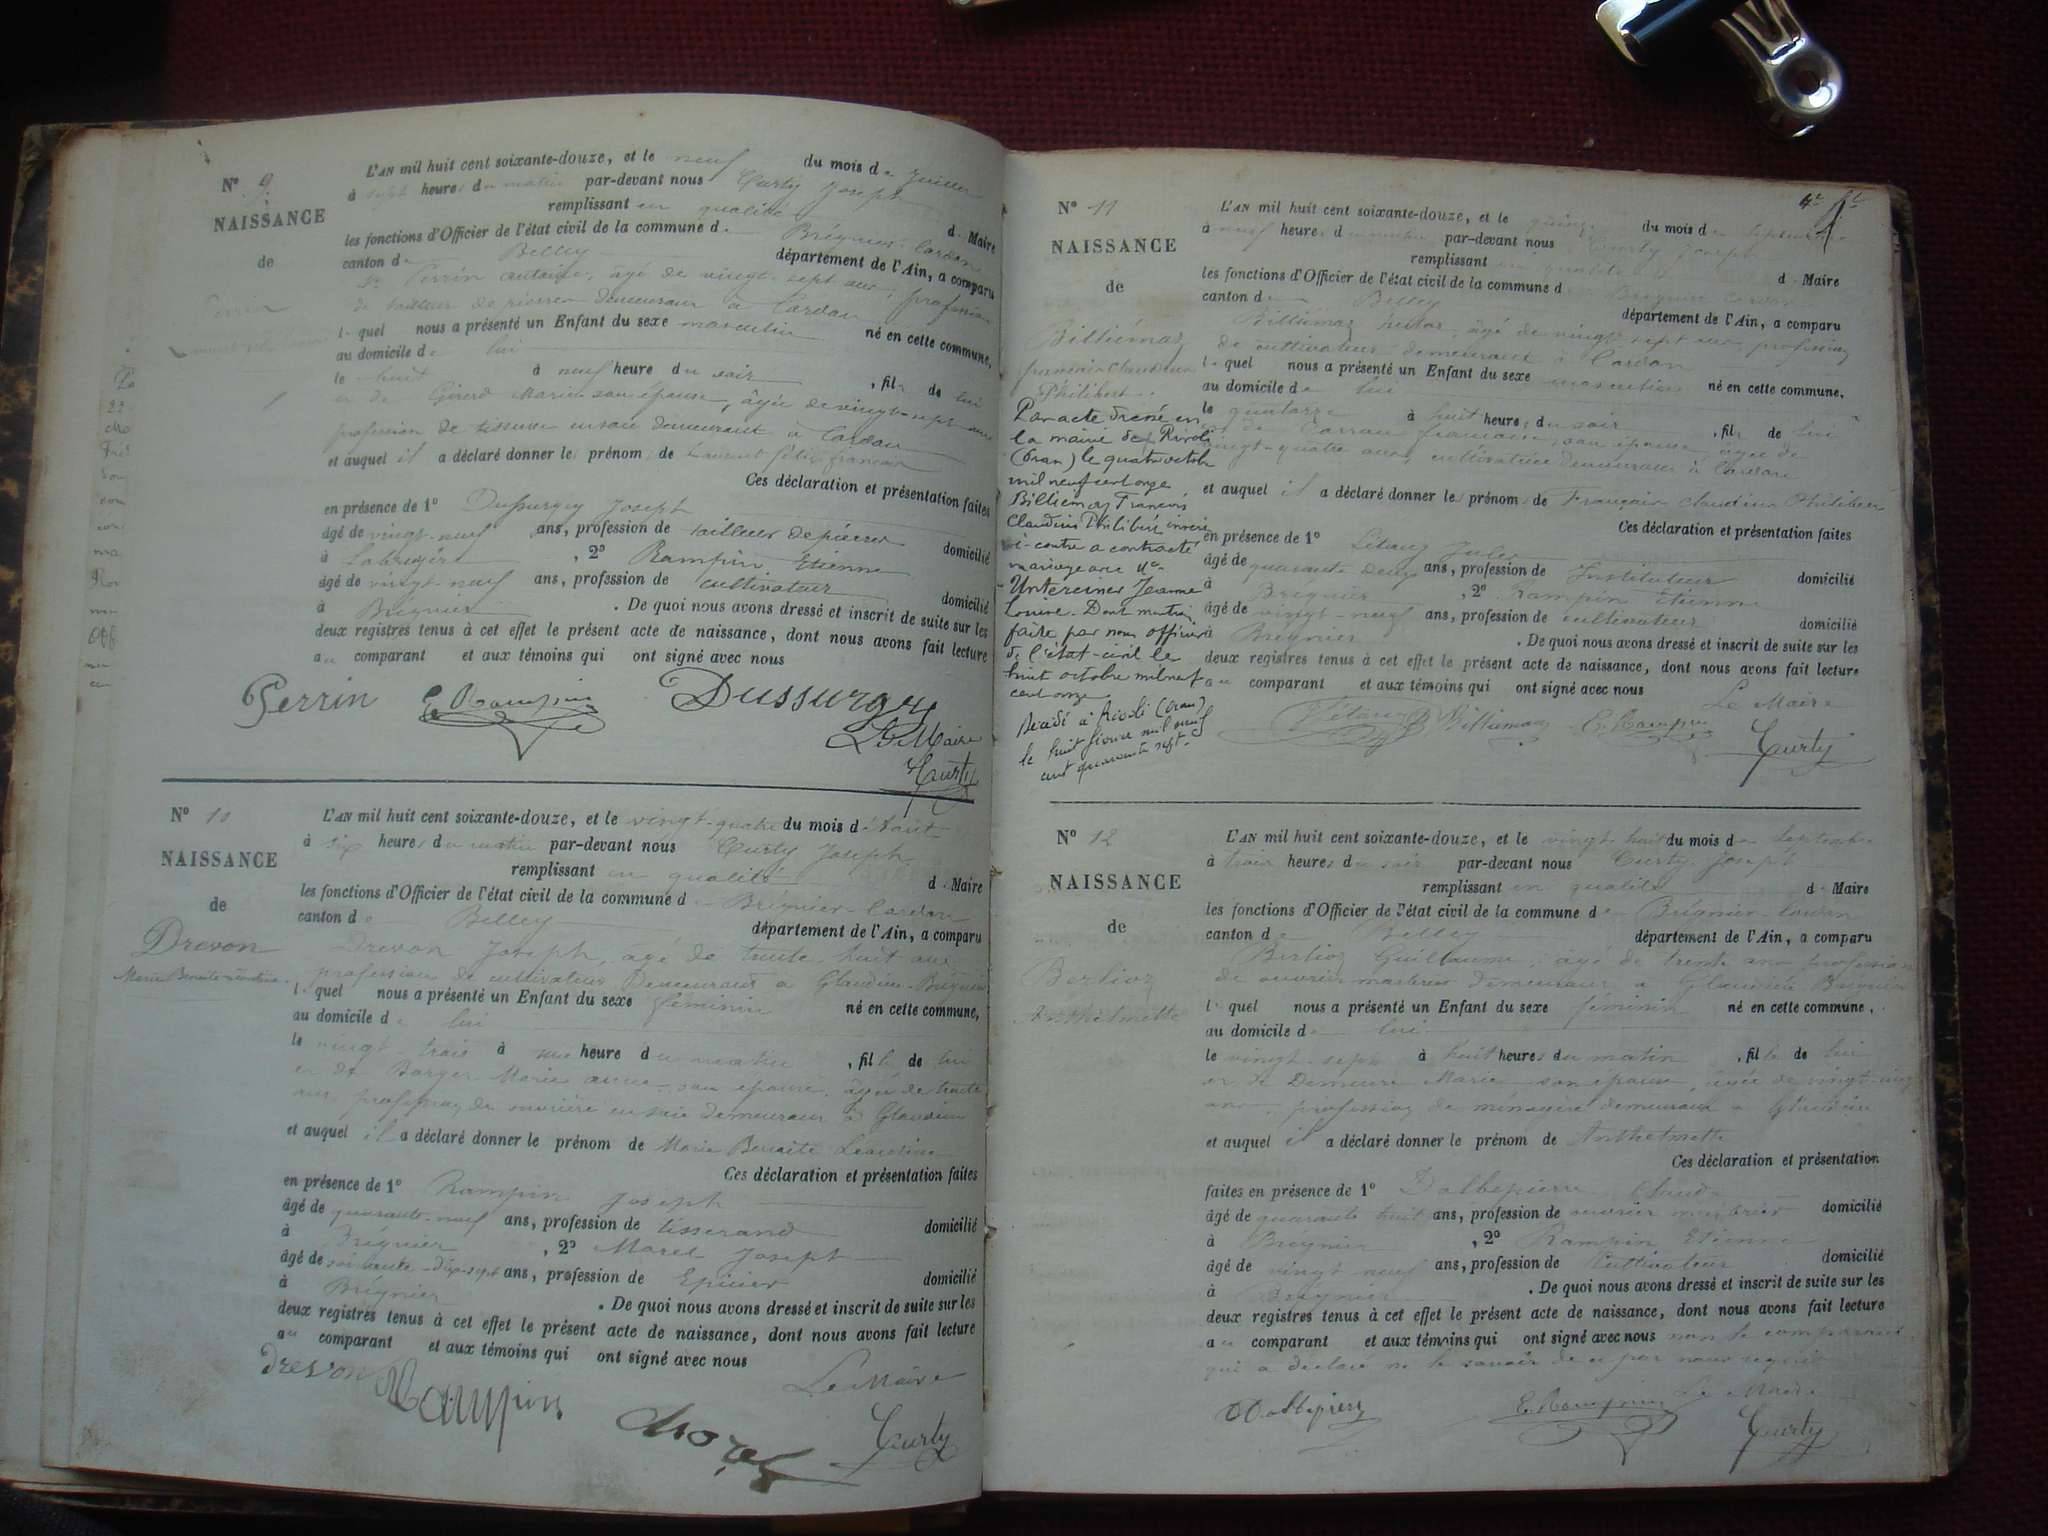 N° 9
NAISSANCE
de
Perrin
L'AN mil huit cent soixante-douze, et le neuf du mois de Juillet
à sept heures du matin par-devant nous Curty Joseph
remplissant en qualité de Maire
les fonctions d'Officier de l'état civil de la commune de Brégnier-Cordon
canton de Belley département de l'Ain, a comparu
Sr Perrin antoine, âgé de vingt-sept ans, profession
de tailleur de pierres demeurant à Cordon
lequel nous a présenté un Enfant du sexe masculin né en cette commune,
au domicile de lui
le huit à neuf heure du soir, fils de lui
et de Girerd Marie son épouse, âgée de vingt-sept ans
profession de tisseuse en soie demeurant à Cordon
et auquel il a déclaré donner les prénoms de Laurent félix françois
Ces déclaration et présentation faites
en présence de 1° Dussurgey Joseph
âgé de vingt-neuf ans, profession de tailleur de pierres domicilié
à Labruyère, 2° Rampin Etienne
âgé de vingt-neuf ans, profession de cultivateur domicilié
à Brégnier. De quoi nous avons dressé et inscrit de suite sur les
deux registres tenus à cet effet le présent acte de naissance, dont nous avons fait lecture
au comparant et aux témoins qui ont signé avec nous
Perrin E. Rampin Dussurgey
Le Maire
Curty
N° 10
NAISSANCE
de
Drevon
Marie Benoite Léontine
L'AN mil huit cent soixante-douze, et le vingt-quatre du mois d'Août
à six heures du matin par-devant nous Curty Joseph
remplissant en qualité de Maire
les fonctions d'Officier de l'état civil de la commune de Brégnier-Cordon
canton de Belley département de l'Ain, a comparu
Drevon Joseph, âgé de trente-huit ans
profession de cultivateur Demeurant à Glandieu-Brégnier
lequel nous a présenté un Enfant du sexe féminin né en cette commune,
au domicile de lui
le vingt-trois à une heure du matin, fille de lui
et de Borger Marie anne son épouse, âgée de trente
ans, profession de ouvrière en soie demeurant à Glandieu
et auquel il a déclaré donner le prénom de Marie Benoite Léontine
Ces déclaration et présentation faites
en présence de 1° Rampin Joseph
âgé de quarante-neuf ans, profession de tisserand domicilié
à Brégnier, 2° Morel Joseph
âgé de soixante-dix-sept ans, profession de Epicier domicilié
à Brégnier. De quoi nous avons dressé et inscrit de suite sur les
deux registres tenus à cet effet le présent acte de naissance, dont nous avons fait lecture
au comparant et aux témoins qui ont signé avec nous
Drevon Rampin Morel
Le Maire
Curty
N° 11
NAISSANCE
de
Billiémaz
françois Claudius
Philibert
Par acte dressé en
la mairie de Rivoli
(Oran) le quatre octobre
mil neuf cent onze
Billiémaz François
Claudius Philibert inscrit
ci-contre a contracté
mariage avec Mle
Untereiner Jeanne
Louise. Dont mention
faite par nous officier
de l'état-civil le
huit octobre mil neuf
cent onze
Décédé à Rivoli (Oran)
le huit février mil neuf
cent quarante sept.
L'AN mil huit cent soixante-douze, et le quinze du mois de septembre
à neuf heures du matin par-devant nous Curty Joseph
remplissant en qualité de Maire
les fonctions d'Officier de l'état civil de la commune de Brégnier Cordon
canton de Belley département de l'Ain, a comparu
Billiémaz, âgé de vingt-sept ans, profession
de cultivateur demeurant à Cordon
lequel nous a présenté un Enfant du sexe masculin né en cette commune,
au domicile de lui
le quatorze à huit heures du soir, fils de lui
et de françoise son épouse âgée de
vingt-quatre ans, cultivatrice demeurant à Cordon
et auquel il a déclaré donner les prénoms de François Claudius Philibert
Ces déclaration et présentation faites
en présence de 1° Létang Jules
âgé de quarante deux ans, profession de Instituteur domicilié
à Brégnier, 2° Rampin Etienne
âgé de vingt-neuf ans, profession de cultivateur domicilié
à Brégnier. De quoi nous avons dressé et inscrit de suite sur les
deux registres tenus à cet effet le présent acte de naissance, dont nous avons fait lecture
au comparant et aux témoins qui ont signé avec nous
Le Maire
Létang Billiemaz E. Rampin
Curty
N° 12
NAISSANCE
de
Berlioz
Anthelmette
L'AN mil huit cent soixante-douze, et le vingt huit du mois de septembre
à trois heures du soir par-devant nous Curty Joseph
remplissant en qualité de Maire
les fonctions d'Officier de l'état civil de la commune de Brégnier-Cordon
canton de Belley département de l'Ain, a comparu
Berlioz Guillaume, âgé de trente ans profession
de ouvrier marbrier demeurant à Glandieu Brégnier
lequel nous a présenté un Enfant du sexe féminin né en cette commune,
au domicile de lui
le vingt-sept à huit heures du matin, fille de lui
et de Demeure Marie son épouse, âgée de vingt-cinq
ans, profession de ménagère demeurant à Glandieu
et auquel il a déclaré donner le prénom de Anthelmette
Ces déclaration et présentation
faites en présence de 1° Dalbepierre Claude
âgé de quarante huit ans, profession de ouvrier marbrier domicilié
à Brégnier, 2° Rampin Etienne
âgé de vingt neuf ans, profession de Cultivateur domicilié
à Brégnier. De quoi nous avons dressé et inscrit de suite sur les
deux registres tenus à cet effet le présent acte de naissance, dont nous avons fait lecture
au comparant et aux témoins qui ont signé avec nous non le comparant
qui a déclaré ne le savoir de ce par nous requis
Le Maire
Dalbepierre E. Rampin Curty